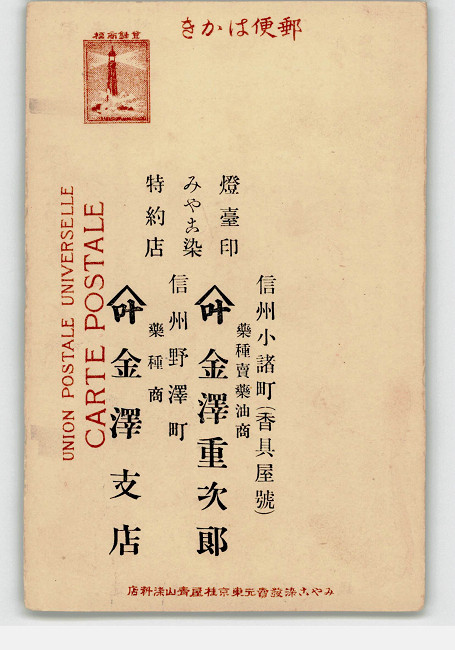 郵便はかき
登録商標
燈臺印
みやこ染
特約店
信州小諸町(香具屋號)
藥種賣藥油商
叶 金澤重次郎
信州野澤町
藥種商
叶 金澤支店
UNION POSTALE UNIVERSELLE
CARTE POSTALE
みやこ染發賣元東京桂屋青山染料店